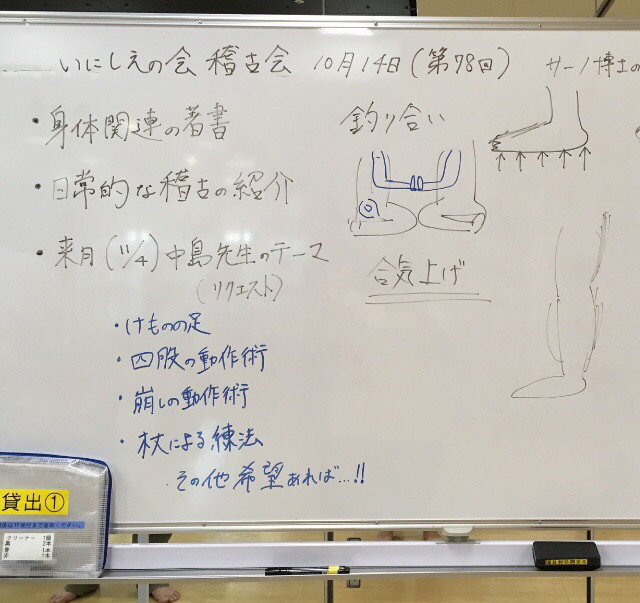 いにしえの会 稽古会 10月14日(第78回)
サーノ博士の
・身体関連の著書
・日常的な稽古の紹介
・来月(11/4)中島先生のテーマ
(リクエスト)
・けものの足
・四股の動作術
・崩しの動作術
・杖による練法
・その他希望あれば…!!
釣り合い
合気上げ
貸出①
クリーナー 1個
黒 2本
青 1本
赤 1本